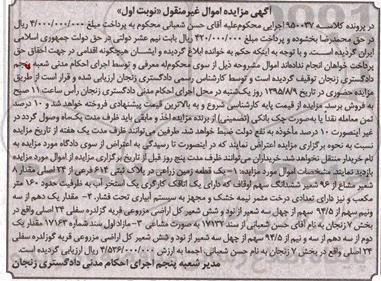 آگهی مزایده اموال غیرمنقول «نوبت اول»
در پرونده کلاسه ۹۵۰۰۳۷ اجرایی محکوم‌علیه آقای حسن شعبانی محکوم به پرداخت مبلغ ۴/۰۰۰/۰۰۰/۰۰۰ ریال
در حق محمدرضا بخشوده و پرداخت مبلغ ۴۲۰/۰۰۰/۰۰۰ ریال بابت نیم عشر دولتی در حق دولت جمهوری اسلامی
ایران گردیده است. و با توجه به اینکه حکم به خوانده ابلاغ گردیده و ایشان هیچگونه اقدامی در جهت احقاق حق
پرداخت خواهان انجام نداده‌اند اموال مشروحه ذیل از سوی محکوم‌له معرفی و توسط اجرای احکام مدنی شعبه پنجم
دادگستری زنجان توقیف گردیده است و توسط کارشناس رسمی دادگستری زنجان ارزیابی شده و قرار است از طریق
مزایده حضوری در تاریخ ۱۳۹۵/۸/۹ روز یک‌شنبه در محل اجرای احکام مدنی دادگستری زنجان رأس ساعت ۱۱ صبح
به فروش برسد. مزایده از قیمت پایه کارشناس شروع و به بالاترین قیمت پیشنهادی فروخته خواهد شد و ۱۰ درصد
فی المجلس نقدا یا به‌صورت چک بانکی (تضمینی) از برنده مزایده اخذ و مابقی باید ظرف مدت یک‌ماه وصول گردد در
غیر اینصورت ۱۰ درصد ماخوذه به نفع دولت ضبط خواهد شد. طرفین می‌توانند ظرف مدت یک هفته از تاریخ مزایده
نسبت به نحوه برگزاری مزایده اعتراض نمایند که در اینصورت تا رسیدگی به اعتراض از سوی دادگاه مورد مزایده به
نام خریدار منتقل نخواهد شد. خریداران می‌توانند ظرف مدت پنج روز قبل از تاریخ برگزاری مزایده از اموال مورد مزایده
بازدید نمایند. مشخصات اموال مورد مزایده: ۱- یک قطعه زمین زراعی در پلاک ثبتی ۶۱۴ فرعی از ۲۴ اصلی مقدار ۸
شعیر مشاع از ۹۶ شعیر ششدانگ سهم اوقاف که دارای یک اتاقک کارگری یک استخر آب به ظرفیت حدود ۱۶۰ متر
مکعب و نیز دارای تعدادی درخت مثمر نیمه خشک و مجهز به سیستم آبیاری تحت فشار. ۲- مقدار یک دهم از سه
ونیم سهم از ۹۴/۵ سهم از چهل سه شعیر از نود و شش شعیر کل اراضی مزروعی قریه گزلدره سفلی ۲۴ اصلی واقع در
بخش ۷ زنجان به نام آقای حسن شعبانی از سند ۱۷۱۳۴ به صورت مشاعی ۳- مازاد اول سند شماره ۱۷۱۶۳ مقدار یک
دوم از سه دهم از سه و نیم از ۹۴/۵ سهم از چهل سه شعیر از نود و شش شعیر کل اراضی مزروعی قریه گوزلدره سفلی
۲۴ اصلی واقع در بخش ۷ زنجان به نام حسن شعبانی اجمعا به ارزش ۴/۵۳۶/۰۰۰/۰۰۰ ریال ارزیابی گردیده است.
مدیر شعبه پنجم اجرای احکام مدنی دادگستری زنجان